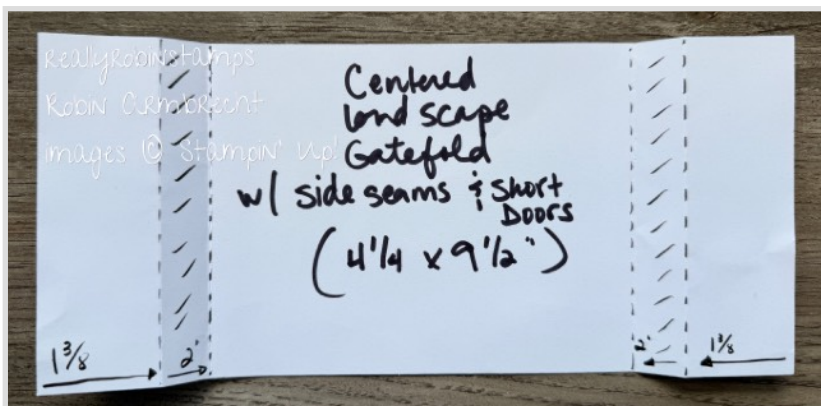 ReallyRobinStamps
Robin Armbrecht
images © Stampin' Up!
Centered
landscape
Gatefold
w/ side seams & short
Doors
(4 1/4 x 9 1/2")
1 3/8
2"
2"
1 3/8